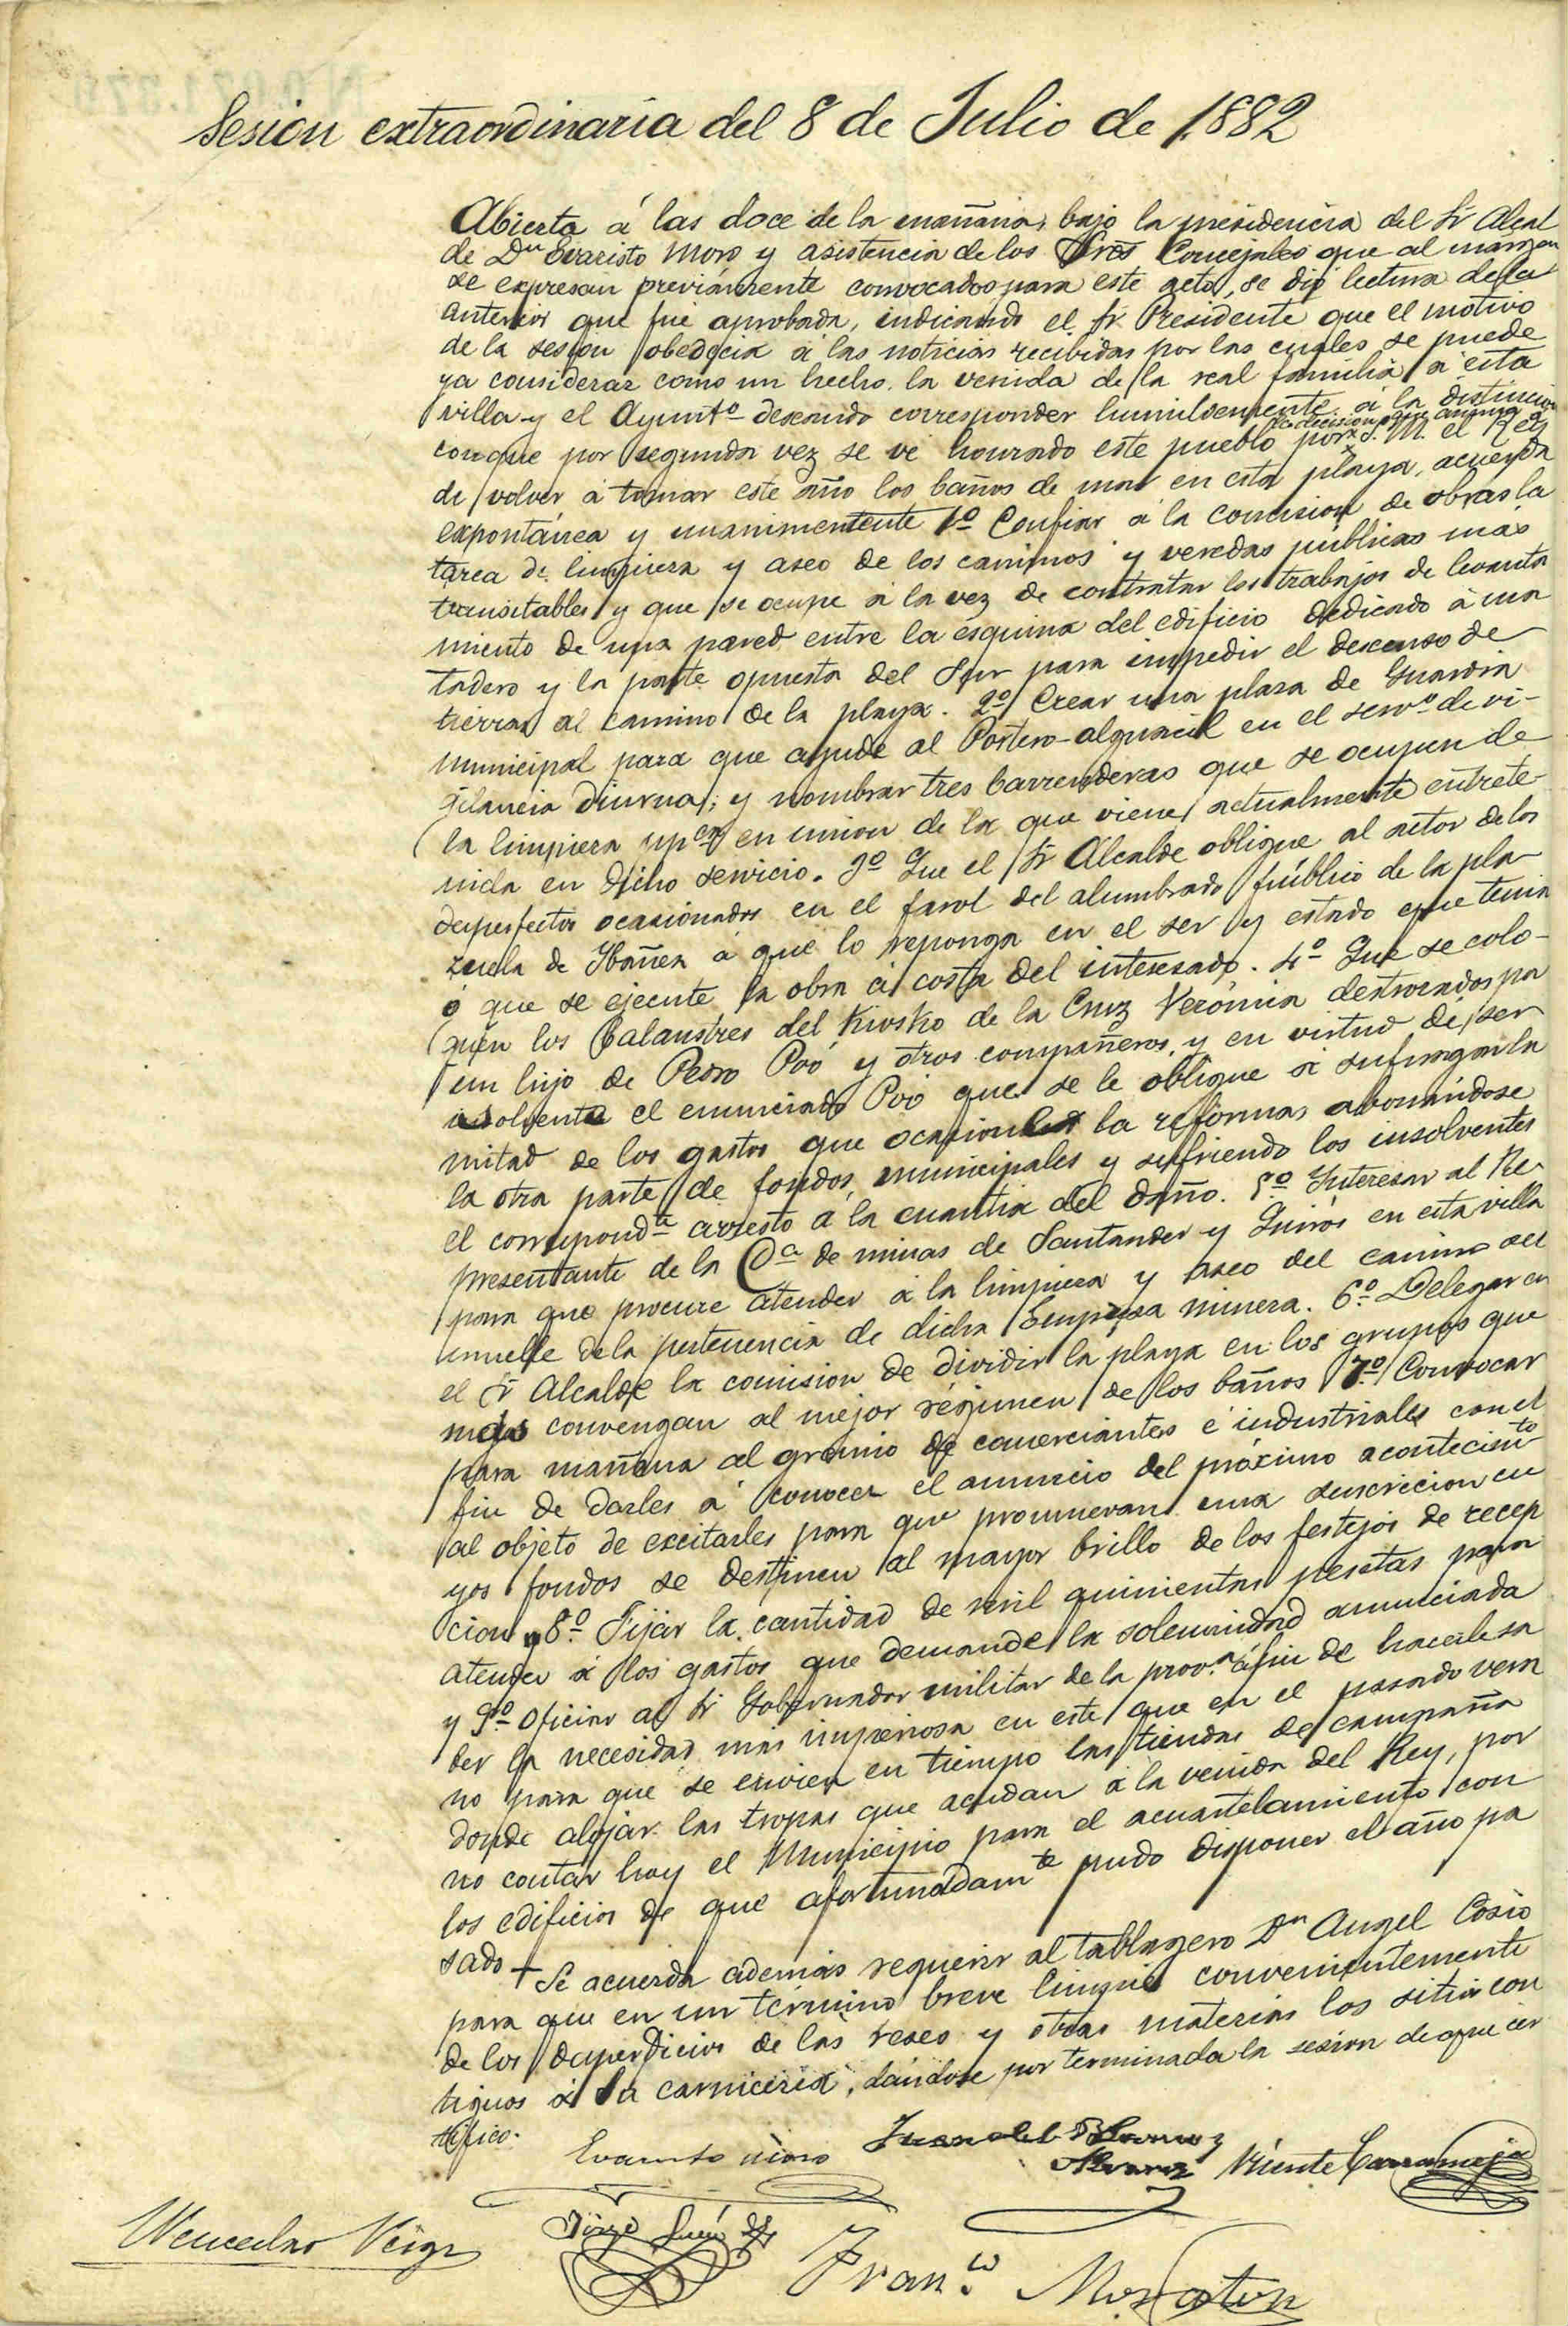 Sesion extraordinaria del 8 de Julio de 1882
Abierta á las doce de la mañana, bajo la presidencia del Sr Alcal
de Dn Evaristo Moro y asistencia de los Sres Concejales que al margen
se expresan previamente convocados para este acto, se dió lectura de la
anterior que fué aprobada, indicando el Sr Presidente que el motivo
de la sesion obedecia á las noticias recibidas por las cuales se puede
ya considerar como un hecho la venida de la real familia á esta
villa y el Ayuntº deseando corresponder humildemente á la distincion
con que por segunda vez se vé honrado este pueblo por la decision que anima a S. M. el Rey
de volver á tomar este año los baños de mar en esta playa, acuerda
expontánea y unanimentente 1º Confiar á la comision de obras la
tarea de limpieza y aseo de los caminos y veredas publicas más
transitables y que se ocupe á la vez de contratar los trabajos de levanta
miento de una pared entre la esquina del edificio dedicado á ma
tadero y la parte opuesta del Sur para impedir el descenso de
tierras al camino de la playa. 2º Crear una plaza de Guardia
municipal para que ayude al Portero-alguacil en el servº de vi-
gilancia diurna; y nombrar tres barrenderas que se ocupen de
la limpieza ppca en union de la que viene actualmente entrete-
nida en dicho servicio. 3º Que el Sr Alcalde obligue al autor de los
desperfectos ocasionados en el farol del alumbrado público de la pla-
zuela de Ibañez á que lo reponga en el ser y estado que tenia
ó que se ejecute la obra á costa del interesado. 4º Que se colo-
quen los balaustres del Kiosko de la Cruz Verónica destrozados por
un hijo de Pedro Poó y otros compañeros, y en virtud de ser
insolvente el enunciado Poó que se le obligue á sufragar la
mitad de los gastos que ocasione la reformas abonándose
la otra parte de fondos municipales y sufriendo los insolventes
el correspondte arresto á la cuantia del daño. 5º Interesar al Re-
presentante de la Cª de minas de Santander y Quirós en esta villa
para que procure atender á la limpieza y aseo del camino del
muelle de la pertenencia de dicha Empresa minera. 6º Delegar en
el Sr Alcalde la comision de dividir la playa en los grupos que
mejor convengan al mejor régimen de los baños 7º Convocar
para mañana al gremio de comerciantes é industriales con el
fin de darles á conocer el anuncio del próximo acontecimto
al objeto de excitarles para que promuevan una suscricion cu
yos fondos se destinen al mayor brillo de los festejos de recep
cion y 8º Fijar la cantidad de mil quinientas pesetas para
atender á los gastos que demande la solemnidad anunciada
y 9º Oficiar al Sr Gobernador militar de la provª á fin de hacerle sa
ber la necesidad más imperiosa en este que en el pasado vera
no para que se envien en tiempo las tiendas de campaña
donde alojar las tropas que acudan á la venida del Rey, por
no contar hoy el Municipio para el acuartelamiento con
los edificios de que afortunadamte pudo disponer el año pa
sado + Se acuerda además requerir al tablagero Dn Angel Cosio
para que en un término breve limpie convenientemente
de los desperdicios de las reses y otras materias los sitios con
tiguos á la carniceria, dándose por terminada la sesion de que cer
tifico.
Evaristo Moro
Juan del
Alvarez
Vicente Carranceja
Jorge
Wenceslao Veiga
Franco Moraton